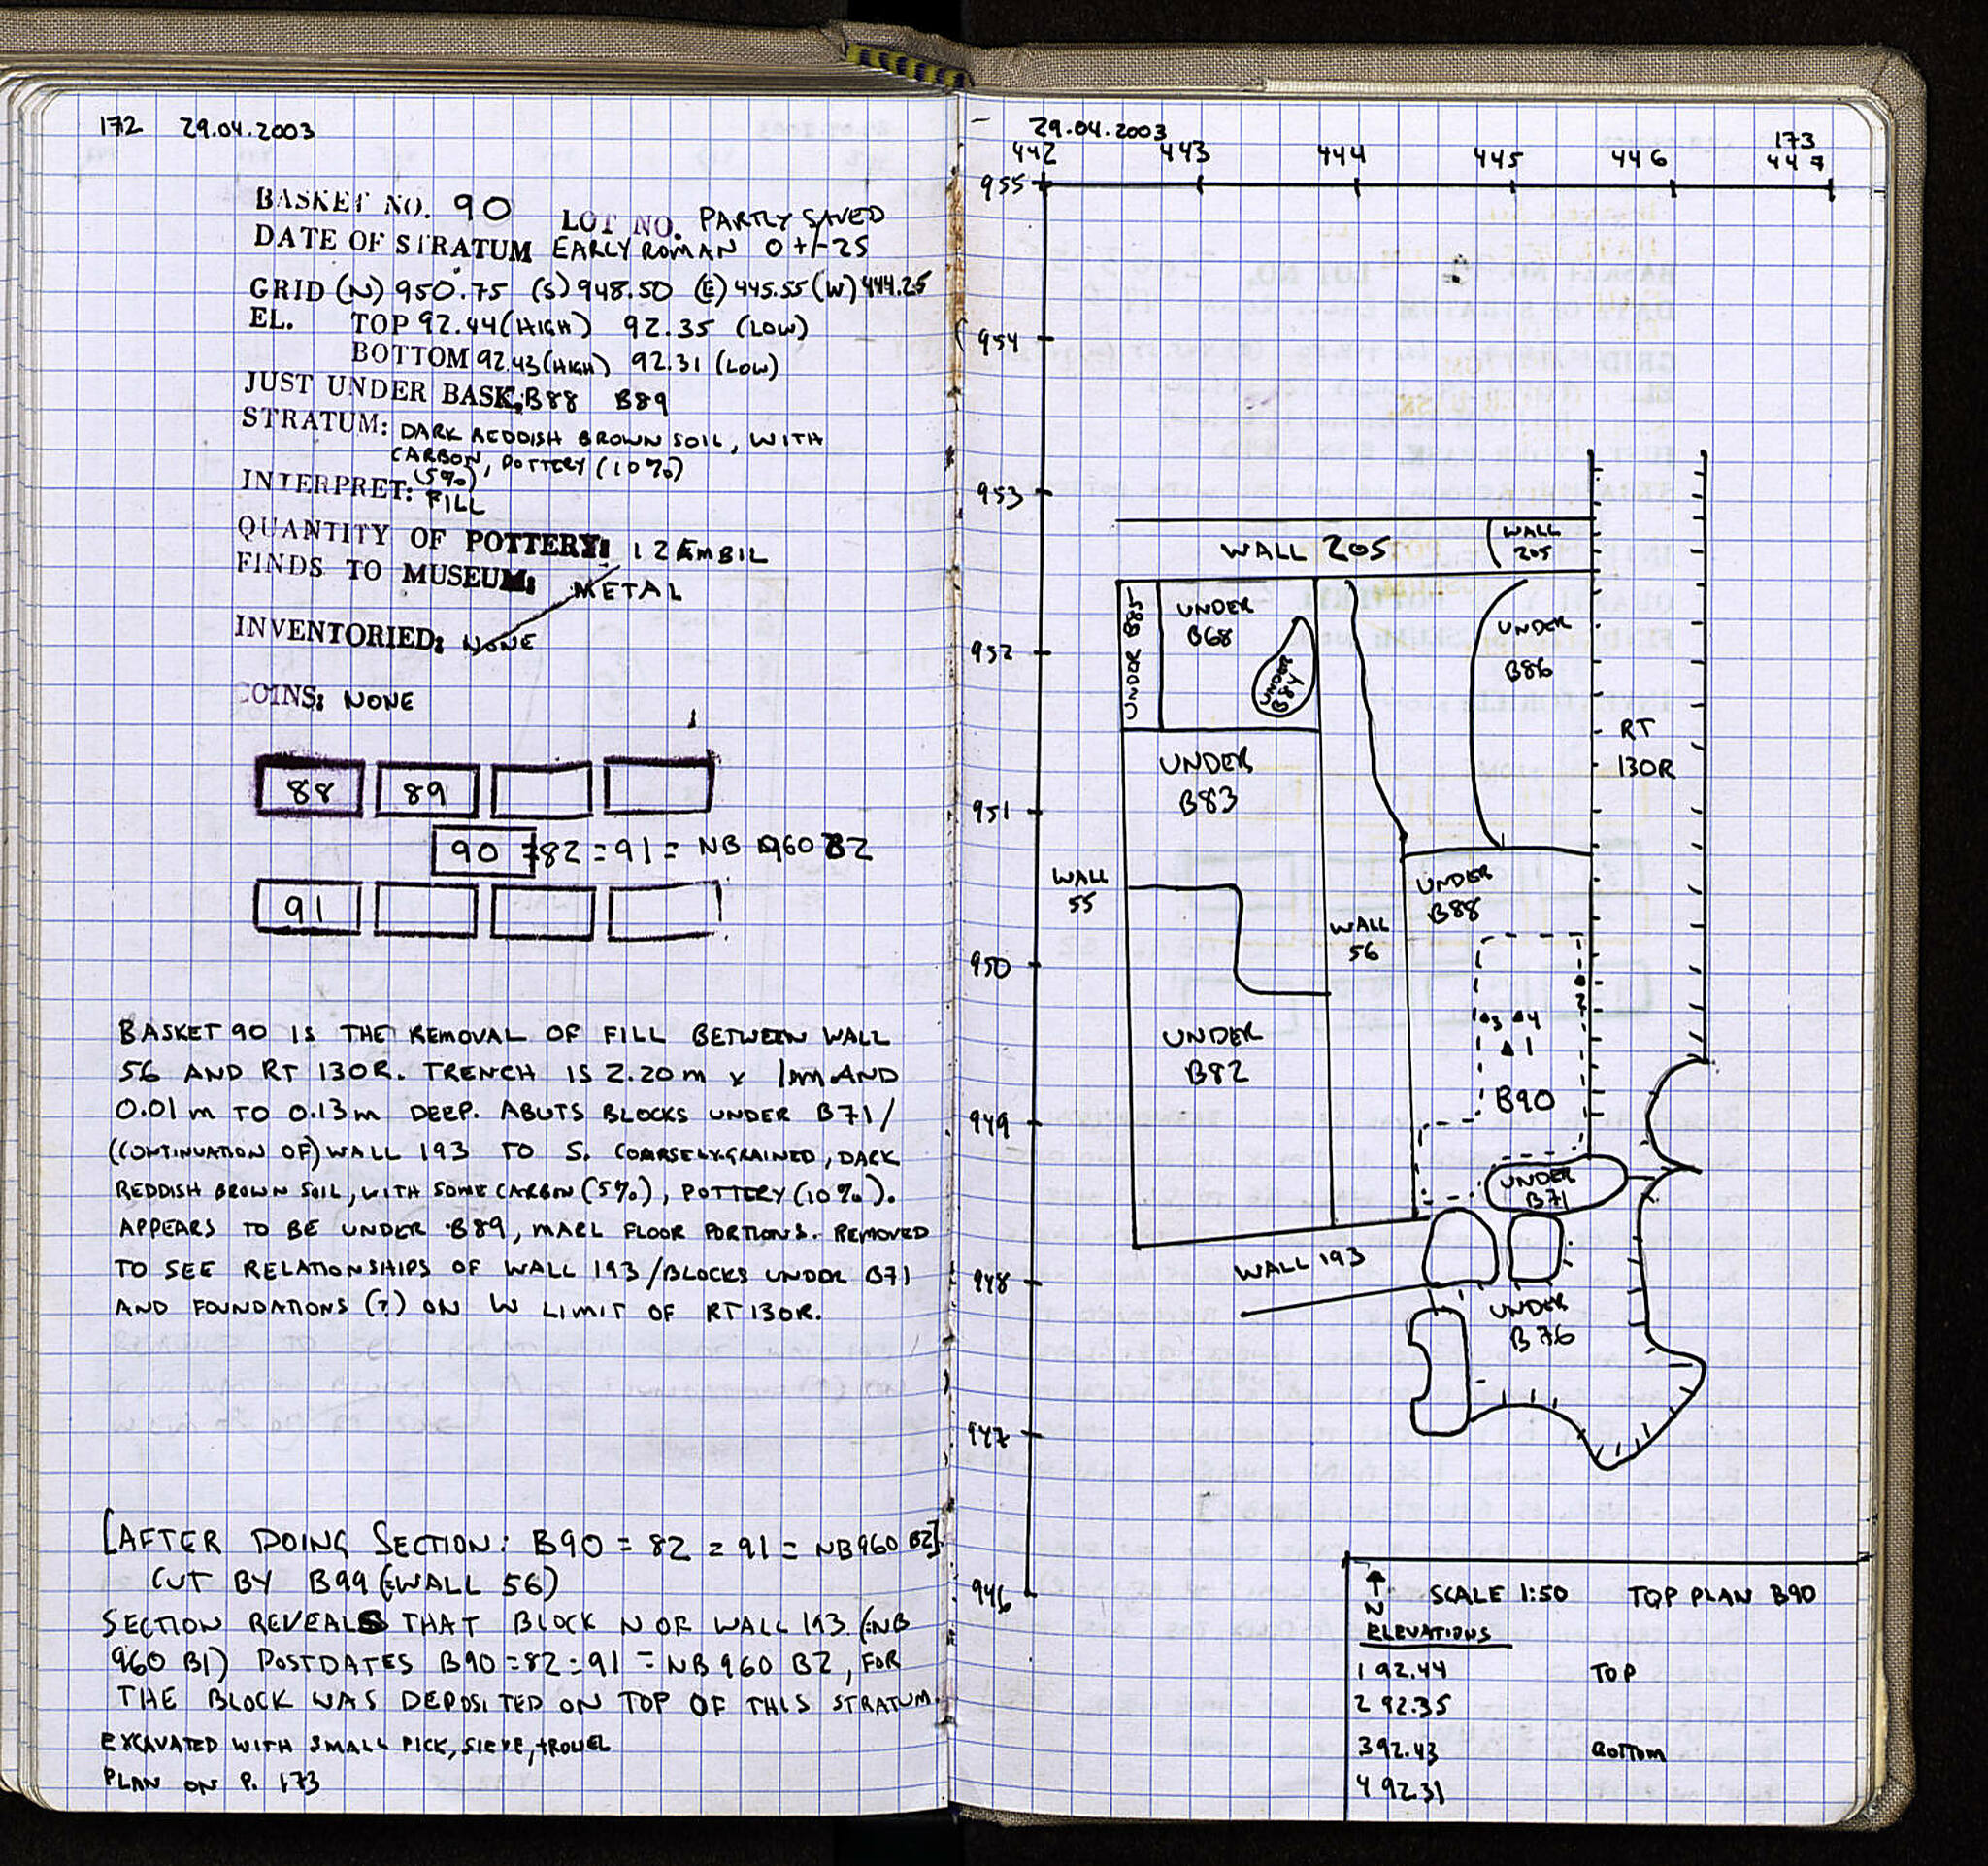 172 29.04.2003
BASKET NO. 90 LOT NO. PARTLY SAVED
DATE OF STRATUM EARLY ROMAN 0 +/- 25
GRID (N) 950.75 (S) 948.50 (E) 445.55 (W) 444.25
EL. TOP 92.44 (HIGH) 92.35 (LOW)
BOTTOM 92.43 (HIGH) 92.31 (LOW)
JUST UNDER BASK. B88 B89
STRATUM: DARK REDDISH BROWN SOIL, WITH
CARBON, POTTERY (10%)
(5%)
INTERPRET: FILL
QUANTITY OF POTTERY: 1 ZEMBIL
FINDS TO MUSEUM: METAL
INVENTORIED: NONE
COINS: NONE
88 89
90 =82 = 91 = NB 960 B2
91
BASKET 90 IS THE REMOVAL OF FILL BETWEEN WALL
56 AND RT 130R. TRENCH IS 2.20 m x 1m AND
0.01 m TO 0.13 m DEEP. ABUTS BLOCKS UNDER B71/
(CONTINUATION OF) WALL 193 TO S. COARSELY-GRAINED, DARK
REDDISH BROWN SOIL, WITH SOME CARBON (5%), POTTERY (10%).
APPEARS TO BE UNDER B89, MARL FLOOR PORTIONS. REMOVED
TO SEE RELATIONSHIPS OF WALL 193/BLOCKS UNDER B71
AND FOUNDATIONS (?) ON W LIMIT OF RT 130R.
[AFTER DOING SECTION: B90 = 82 = 91 = NB960 B2]
CUT BY B99 (=WALL 56)
SECTION REVEALS THAT BLOCK N OF WALL 193 (=NB
960 B1) POSTDATES B90 = 82 = 91 = NB 960 B2, FOR
THE BLOCK WAS DEPOSITED ON TOP OF THIS STRATUM.
EXCAVATED WITH SMALL PICK, SIEVE, TROWEL
PLAN ON P. 173
29.04.2003 173
442 443 444 445 446 447
955
954
953
WALL 205
WALL
205
UNDER B85
UNDER
B68
UNDER
B84
UNDER
B86
952
RT
130R
UNDER
B83
951
WALL
55
UNDER
B88
WALL
56
950
2
3 4
1
UNDER
B82
B90
949
UNDER
B71
WALL 193
948
UNDER
B76
947
946
N
SCALE 1:50 TOP PLAN B90
ELEVATIONS
1 92.44 TOP
2 92.35
3 92.43 BOTTOM
4 92.31